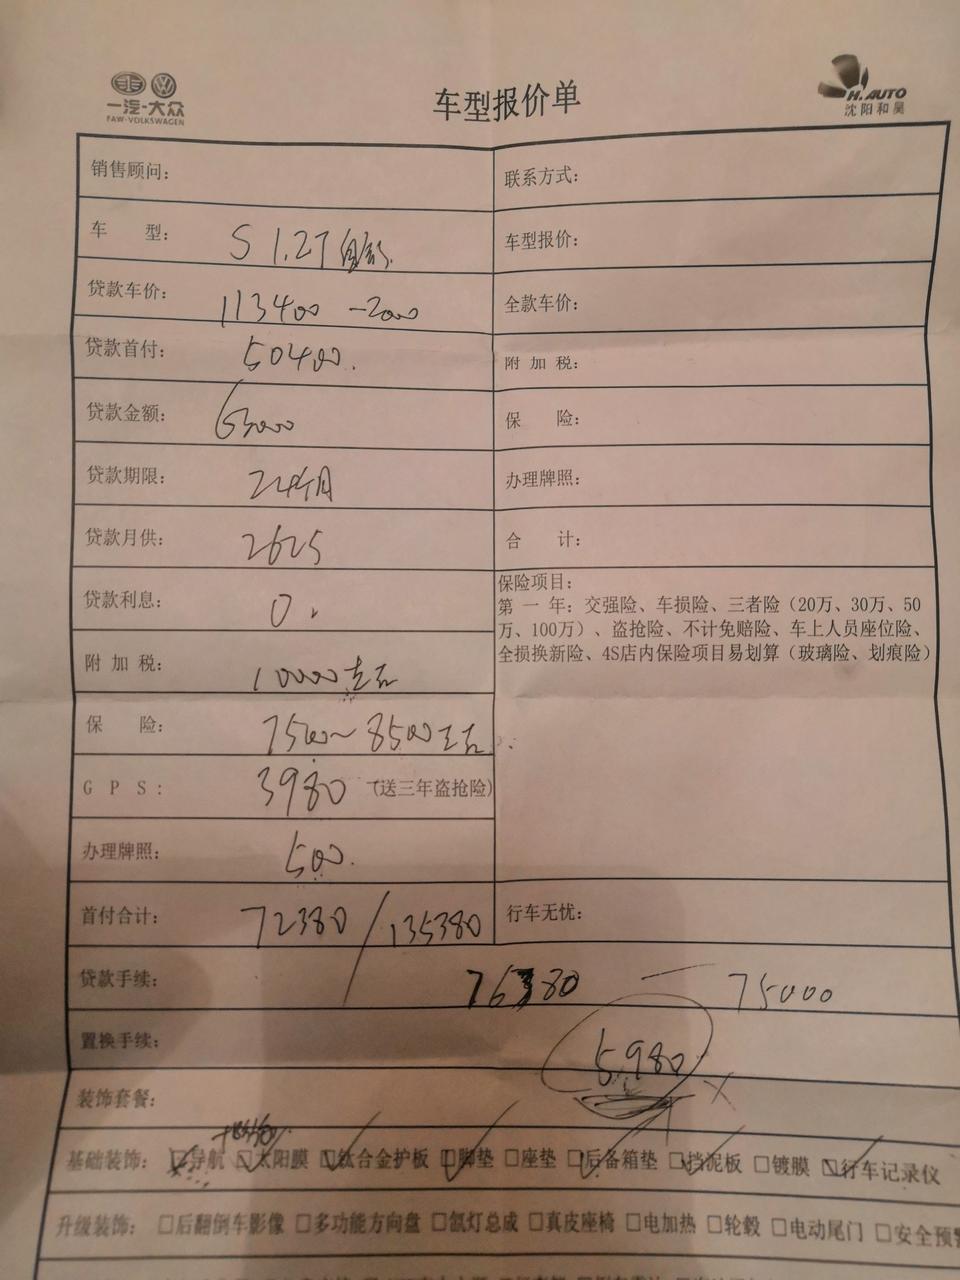 一汽-大众
FAW-VOLKSWAGEN
车型报价单
H.AUTO
沈阳和昊
销售顾问:
联系方式:
车 型: S 1.2T
车型报价:
贷款车价: 113400 -2000
全款车价:
贷款首付: 50400.
附 加 税:
贷款金额: 63000
保 险:
贷款期限: 24个月
办理牌照:
贷款月供: 2625
合 计:
贷款利息: 0.
保险项目:
第 一 年: 交强险、车损险、三者险（20万、30万、50
万、100万）、盗抢险、不计免赔险、车上人员座位险、
全损换新险、4S店内保险项目易划算（玻璃险、划痕险）
附 加 税: 10000左右
保 险: 7500~8500左右
G P S: 3980 (送三年盗抢险)
办理牌照: 500.
首付合计: 72380 / 135380
行车无忧:
贷款手续: 76380 — 75000
置换手续: 5980
装饰套餐:
基础装饰: 导航 太阳膜 钛合金护板 脚垫 □座垫 后备箱垫 挡泥板 □镀膜 行车记录仪
升级装饰: □后翻倒车影像 □多功能方向盘 □氙灯总成 □真皮座椅 □电加热 □轮毂 □电动尾门 □安全预警